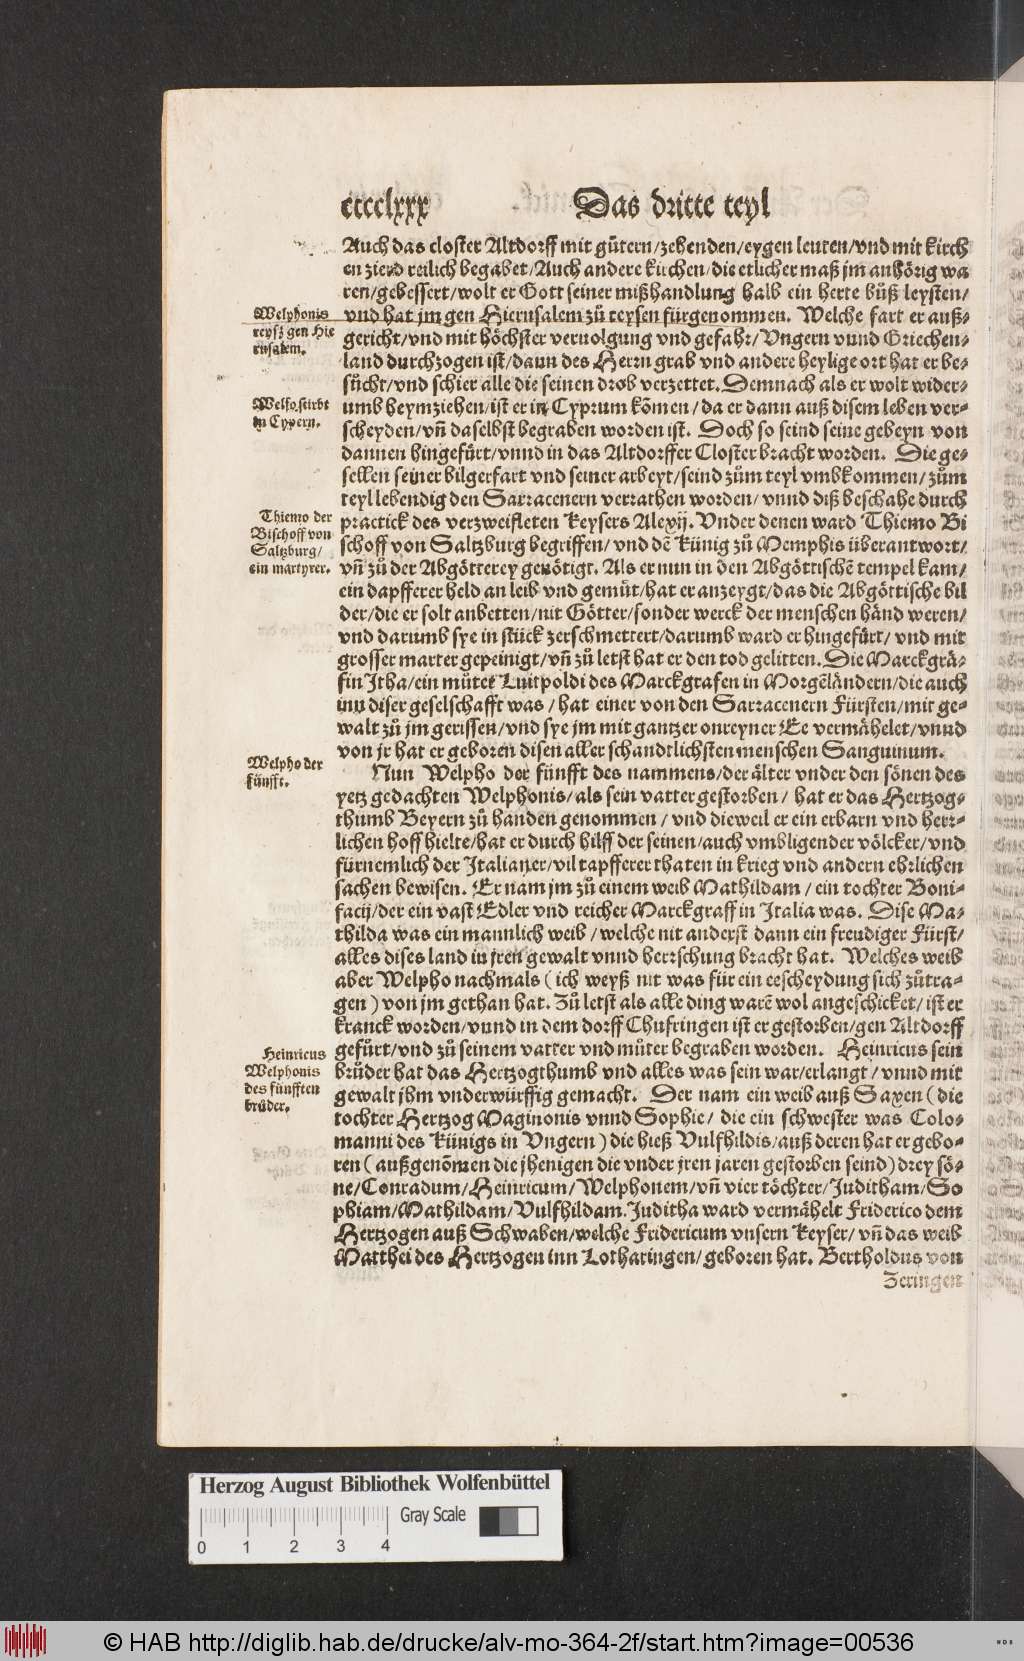 ccccLxxx Das dritte teyl
Auch das closter Altdorff mit gütern/zehenden/eygen leuten/vnd mit kirch
en zierd reilich begabet/Auch andere kirchen/die etlicher maß jm anhörig wa
ren/gebessert/wolt er Gott seiner mißhandlung halb ein herte bůß leysten/
vnd hat jm gen Hierusalem zů reysen fürgenommen. Welche fart er auß-
gericht/vnd mit höchster veruolgung vnd gefahr/Vngern vnnd Griechen-
land durchzogen ist/dann des Herrn grab vnd andere heylige ort hat er be-
sůcht/vnd schier alle die seinen drob verzettet. Demnach als er wolt wider-
umb heymziehen/ist er in Cyprum kõmen/da er dann auß disem leben ver-
scheyden/vñ daselbst begraben worden ist. Doch so seind seine gebeyn von
dannen hingefürt/vnnd in das Altdorffer Closter bracht worden. Die ge-
sellen seiner bilgerfart vnd seiner arbeyt/seind zům teyl vmbkommen/zům
teyl lebendig den Sarracenern verrathen worden/vnnd diß beschahe durch
practick des verzweifleten Keysers Alexij. Vnder denen ward Thiemo Bi
schoff von Saltzburg begriffen/vnd dẽ Künig zů Memphis überantwort/
vñ zů der Abgötterey genötigt. Als er nun in den Abgöttischẽ tempel kam/
ein dapfferer held an leib vnd gemüt/hat er anzeygt/das die Abgöttische bil
der/die er solt anbetten/nit Götter/sonder werck der menschen händ weren/
vnd darumb sye in stück zerschmettert/darumb ward er hingefürt/vnd mit
grosser marter gepeinigt/vñ zů letst hat er den tod gelitten. Die Marckgrä-
fin Itha/ein můter Luitpoldi des Marckgrafen in Morgẽländern/die auch
inn diser geselschafft was/hat einer von den Sarracenern Fürsten/mit ge-
walt zů jm gerissen/vnd sye jm mit gantzer onreyner Ee vermähelet/vnnd
von jr hat er geboren disen aller schandtlichsten menschen Sanguinum.
Nun Welpho der fünfft des nammens/der älter vnder den sönen des
yetz gedachten Welphonis/als sein vatter gestorben/hat er das Hertzog-
thumb Beyern zů handen genommen/vnd dieweil er ein erbarn vnd herr-
lichen hoff hielte/hat er durch hilff der seinen/auch vmbligender völcker/vnd
fürnemlich der Italianer/vil tapfferer thaten in krieg vnd andern ehrlichen
sachen bewisen. Er nam jm zů einem weib Mathildam/ein tochter Boni-
facij/der ein vast Edler vnd reicher Marckgraff in Italia was. Dise Ma-
thilda was ein mannlich weib/welche nit anderst dann ein freudiger Fürst/
alles dises land in jren gewalt vnnd herrschung bracht hat. Welches weib
aber Welpho nachmals (ich weyß nit was für ein eescheydung sich zůtra-
gen) von jm gethan hat. Zů letst als alle ding warẽ wol angeschicket/ist er
kranck worden/vnnd in dem dorff Chufringen ist er gestorben/gen Altdorff
gefürt/vnd zů seinem vatter vnd můter begraben worden. Heinricus sein
brůder hat das Hertzogthumb vnd alles was sein war/erlangt/vnnd mit
gewalt jhm vnderwürffig gemacht. Der nam ein weib auß Saxen (die
tochter Hertzog Maginonis vnnd Sophie/die ein schwester was Colo-
manni des Künigs in Vngern) die hieß Vulfhildis/auß deren hat er gebo-
ren (außgenõmen die jhenigen die vnder jren jaren gestorben seind) drey sö-
ne/Conradum/Heinricum/Welphonem/vñ vier töchter/Juditham/So
phiam/Mathildam/Vulfhildam. Juditha ward vermählt Friderico dem
Hertzogen auß Schwaben/welche Fridericum vnsern Keyser/vñ das weib
Matthei des Hertzogen inn Lotharingen/geboren hat. Bertholdus von
Zeringen
Welphonis
reysz gen Hie
rusalem.
Welfo stirbt
in Cypern.
Thiemo der
Bischoff von
Saltzburg/
ein martyrer.
Welpho der
fünfft.
Heinricus
Welphonis
des fünfften
brůder.
Herzog August Bibliothek Wolfenbüttel
Gray Scale
0 1 2 3 4
© HAB http://diglib.hab.de/drucke/alv-mo-364-2f/start.htm?image=00536